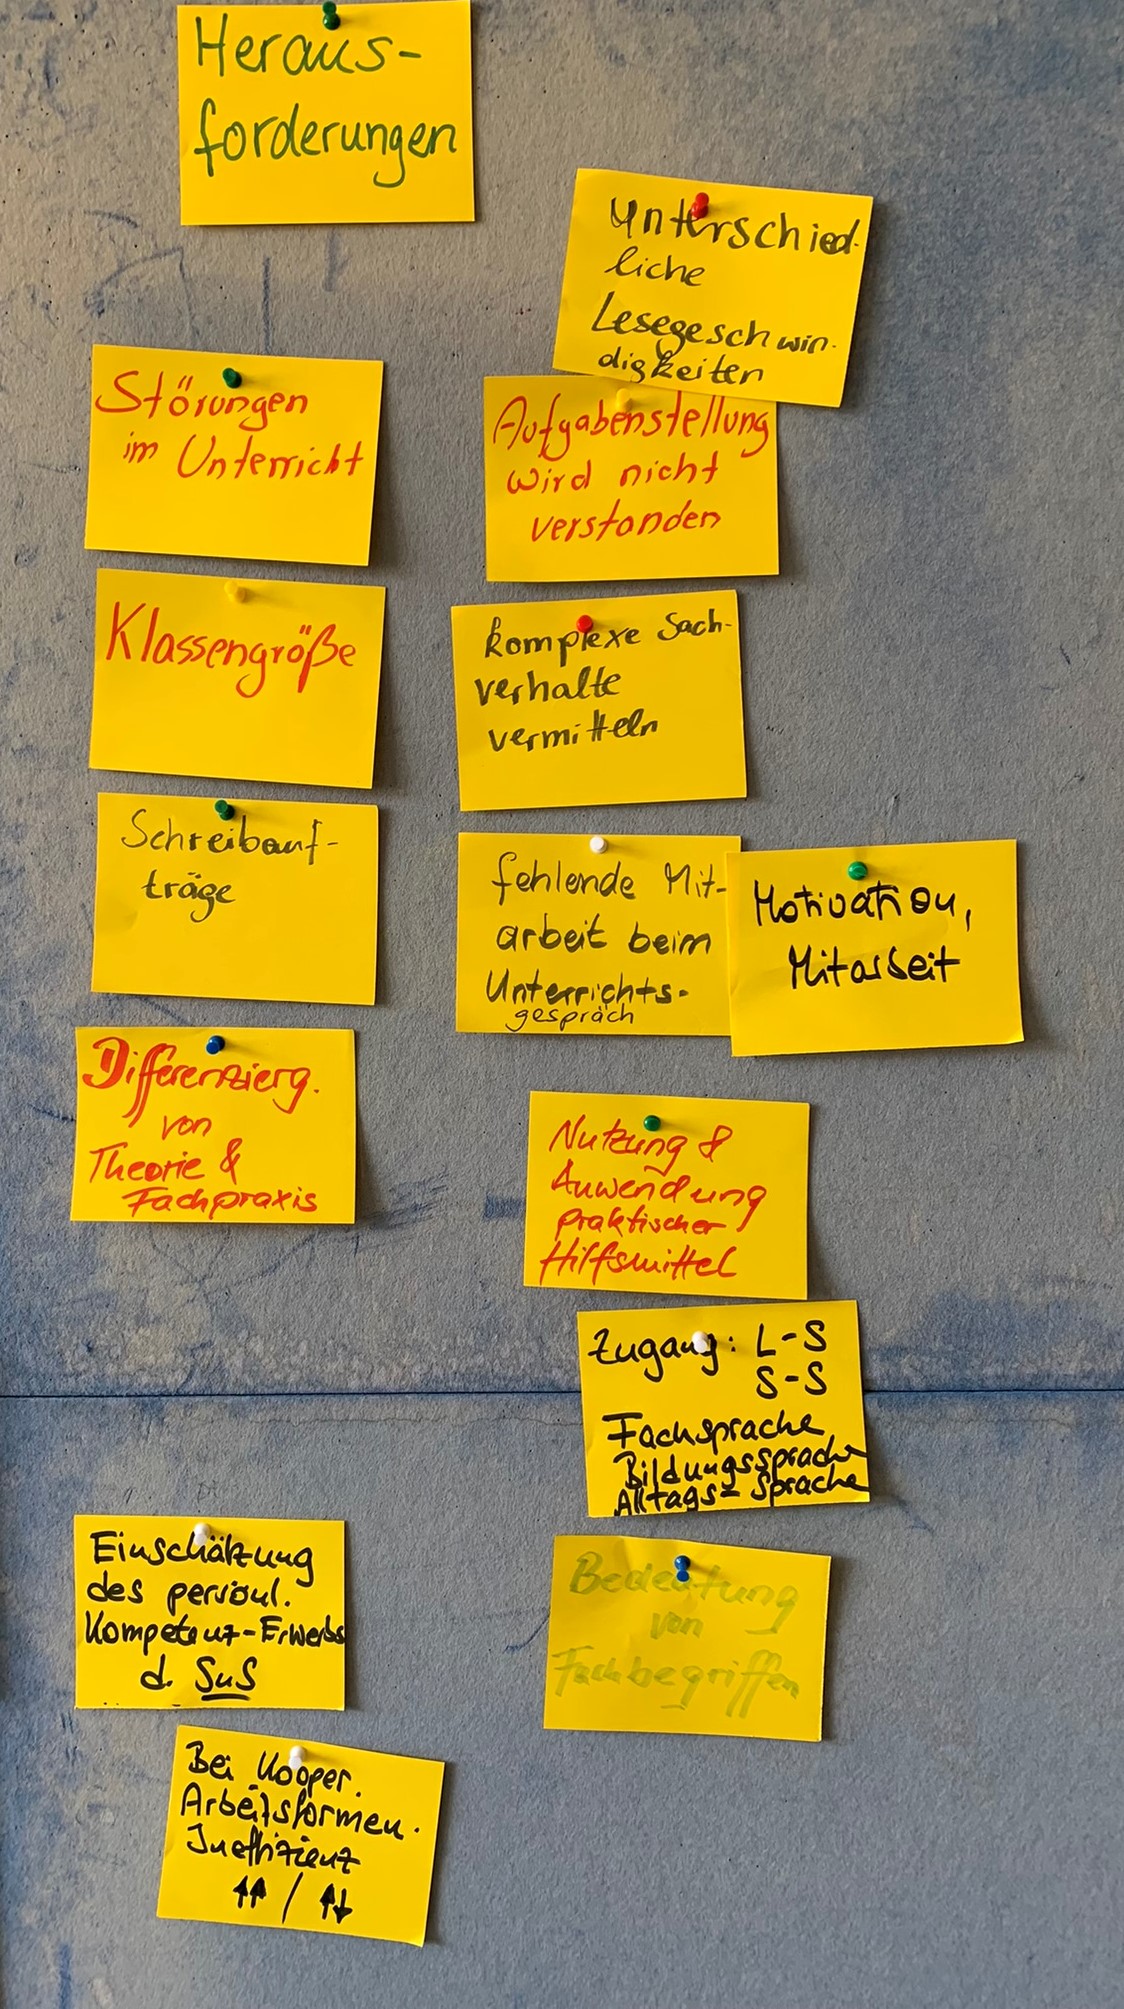 Heraus-
forderungen
Unterschied-
liche
Lesegeschwin-
digkeiten
Störungen
im Unterricht
Aufgabenstellung
wird nicht
verstanden
Klassengröße
komplexe Sach-
verhalte
vermitteln
Schreibauf-
träge
fehlende Mit-
arbeit beim
Unterrichts-
gespräch
Motivation,
Mitarbeit
Differenzierg.
von
Theorie &
Fachpraxis
Nutzung &
Anwendung
praktischer
Hilfsmittel
Zugang: L-S
S-S
Fachsprache
Bildungssprache
Alltags-Sprache
Einschätzung
des persönl.
Kompetenz-Erwerbs
d. SuS
Bedeutung
von
Fachbegriffen
Bei Kooper.
Arbeitsformen.
Ineffizienz
↑↑ / ↑↓